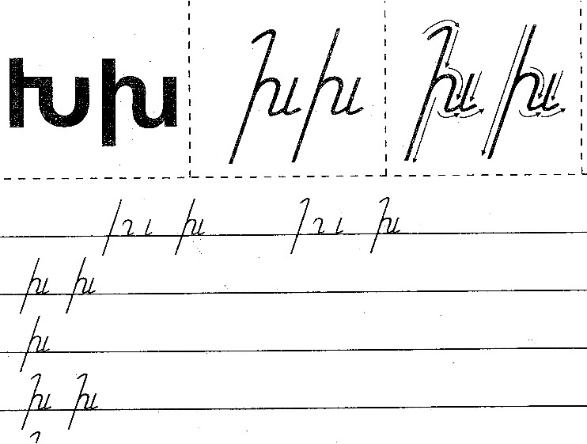 Խխ Խխ Խխ
խ Խ
խ խ
խ
Խ Խ